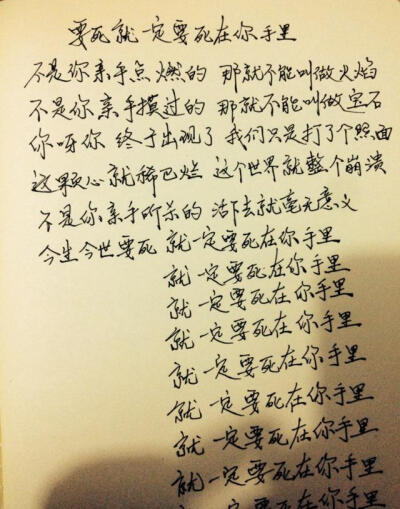 要死就一定要死在你手里
不是你亲手点燃的 那就不能叫做火焰
不是你亲手摸过的 那就不能叫做宝石
你呀你 终于出现了 我们只是打了个照面
这颗心就稀巴烂 这个世界就整个崩溃
不是你亲手所杀的 活下去就毫无意义
今生今世要死 就一定要死在你手里
就一定要死在你手里
就一定要死在你手里
就一定要死在你手里
就一定要死在你手里
就一定要死在你手里
就一定要死在你手里
就一定要死在你手里
一定要死在你手里